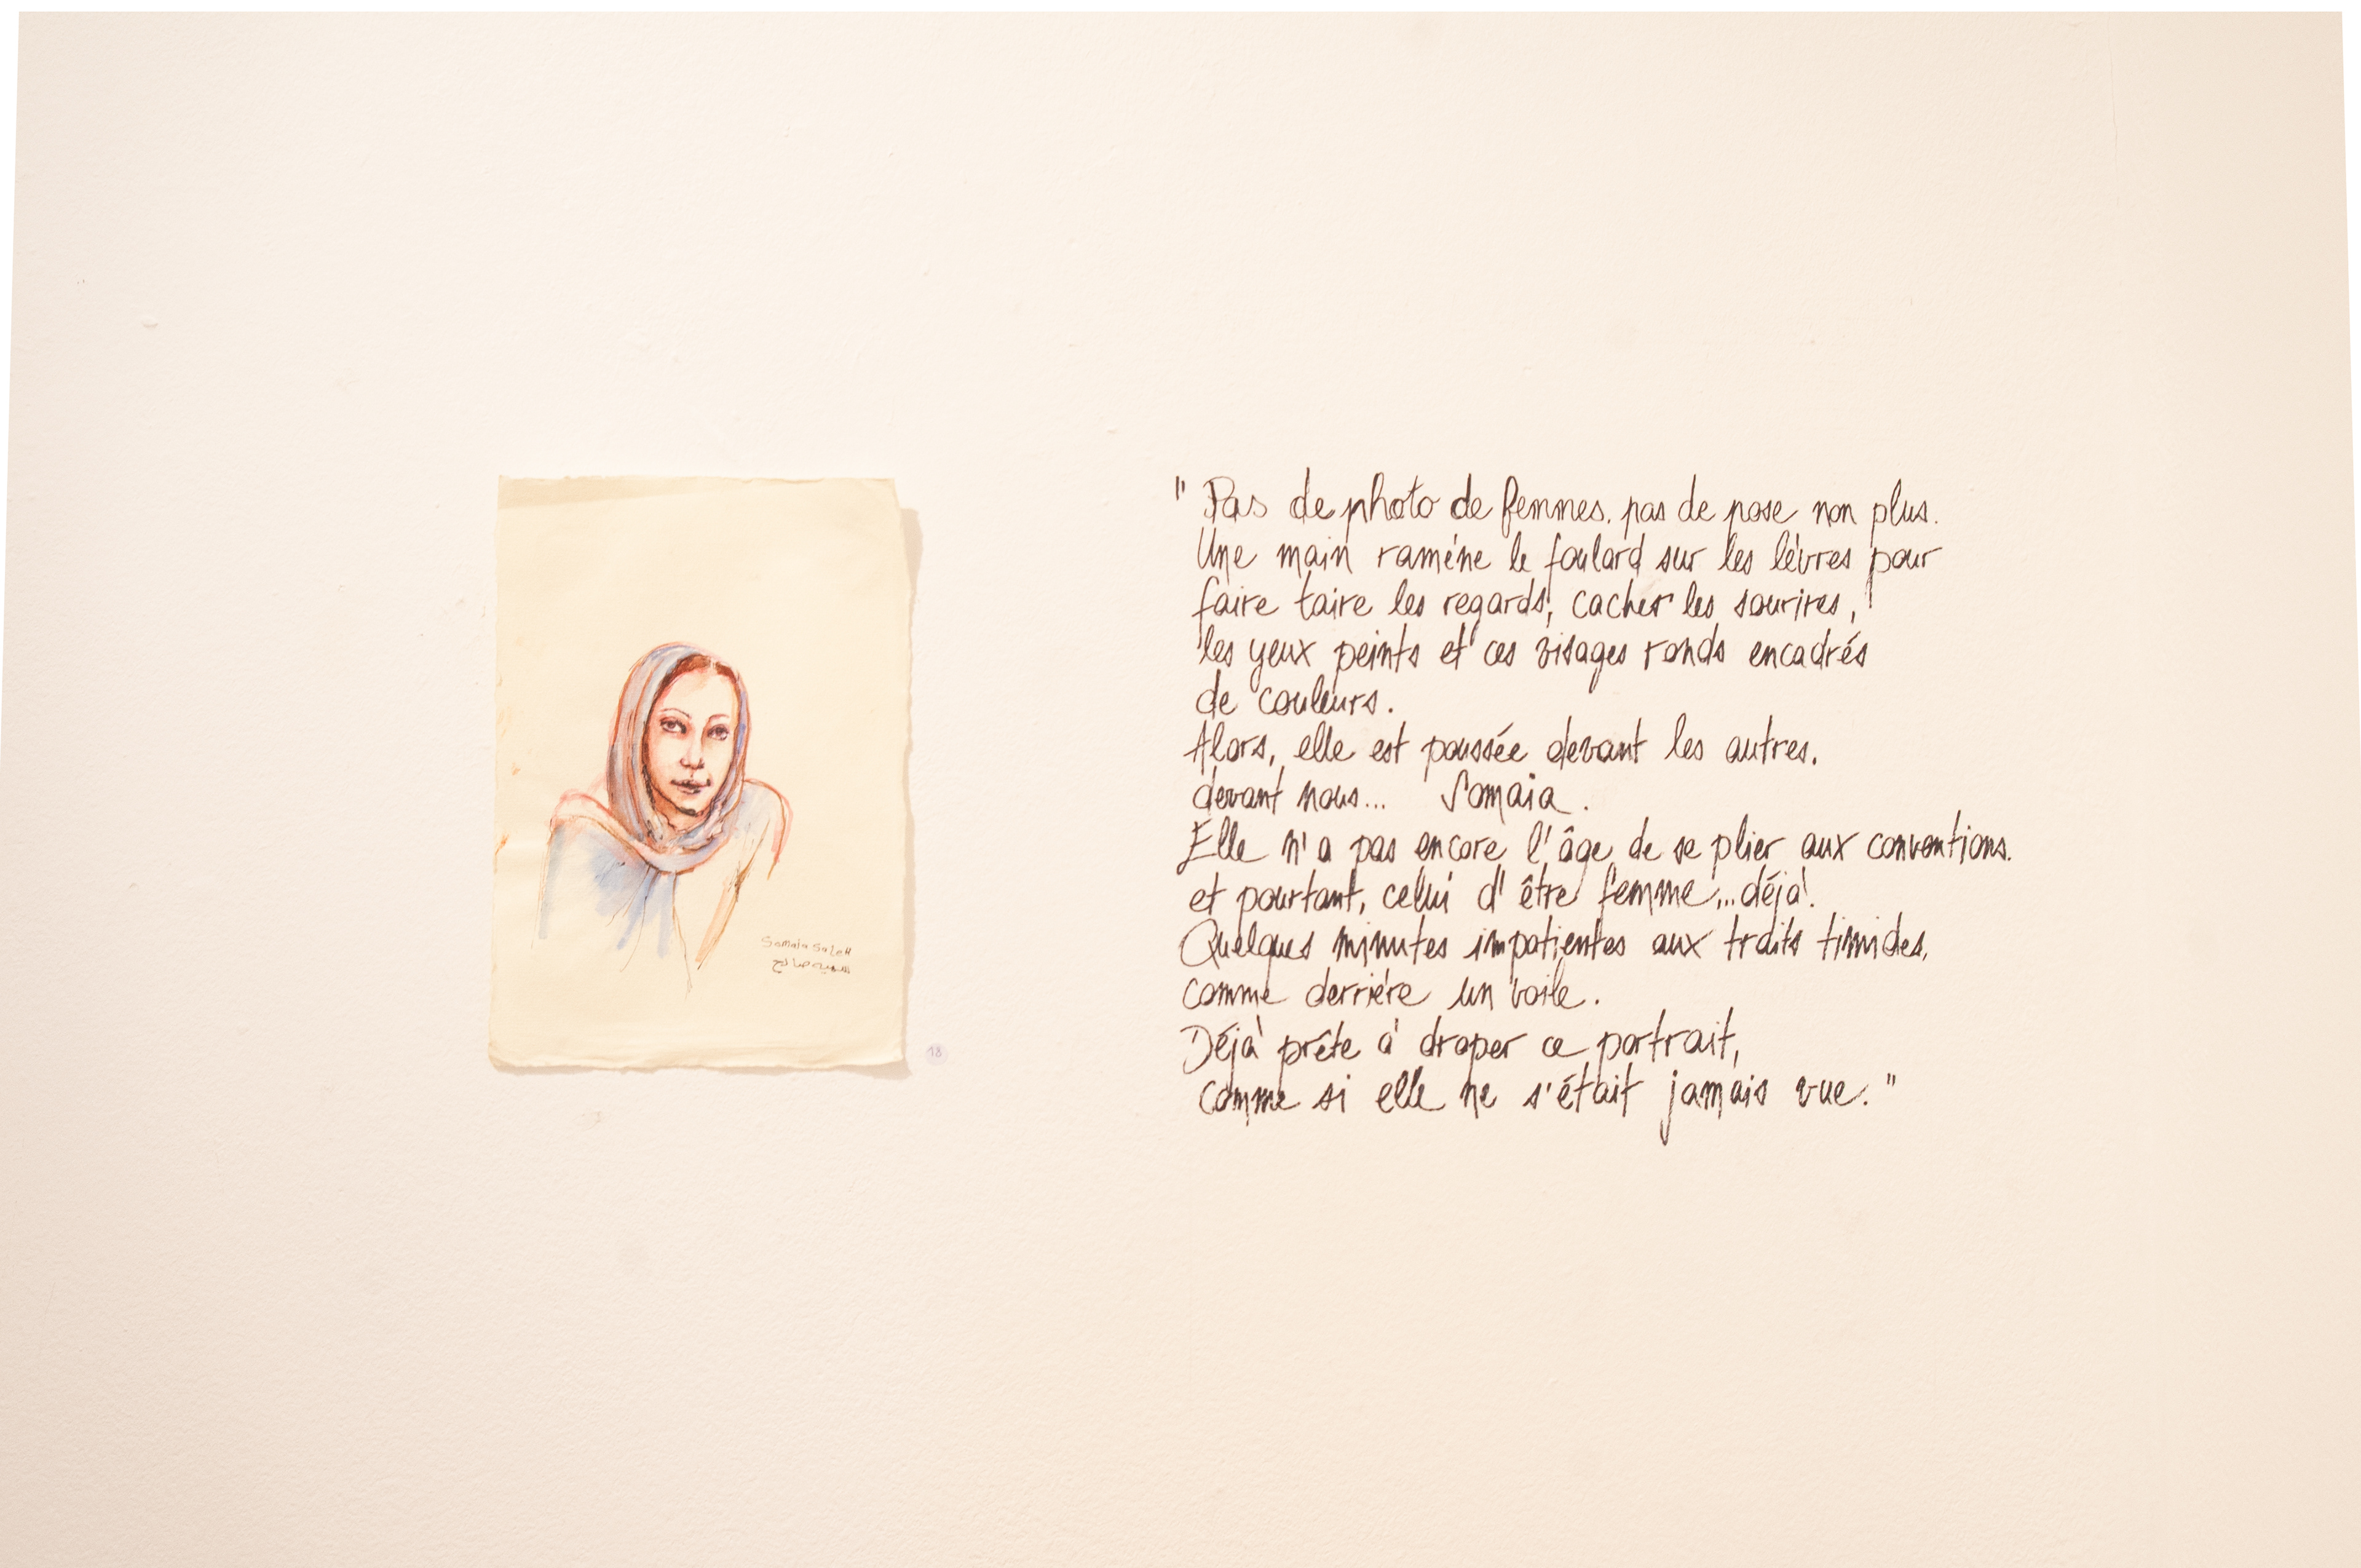 Samaia Saleh
سميه صالح
18
" Pas de photo de femmes. pas de pose non plus.
Une main ramène le foulard sur les lèvres pour
faire taire les regards, cacher les sourires,
les yeux peints et ces visages ronds encadrés
de couleurs.
Alors, elle est poussée devant les autres.
devant nous... Somaia.
Elle n'a pas encore l'âge de se plier aux conventions.
et pourtant, celui d'être femme...déjà.
Quelques minutes impatientes aux traits timides,
comme derrière un voile.
Déjà prête à draper ce portrait,
comme si elle ne s'était jamais vue."